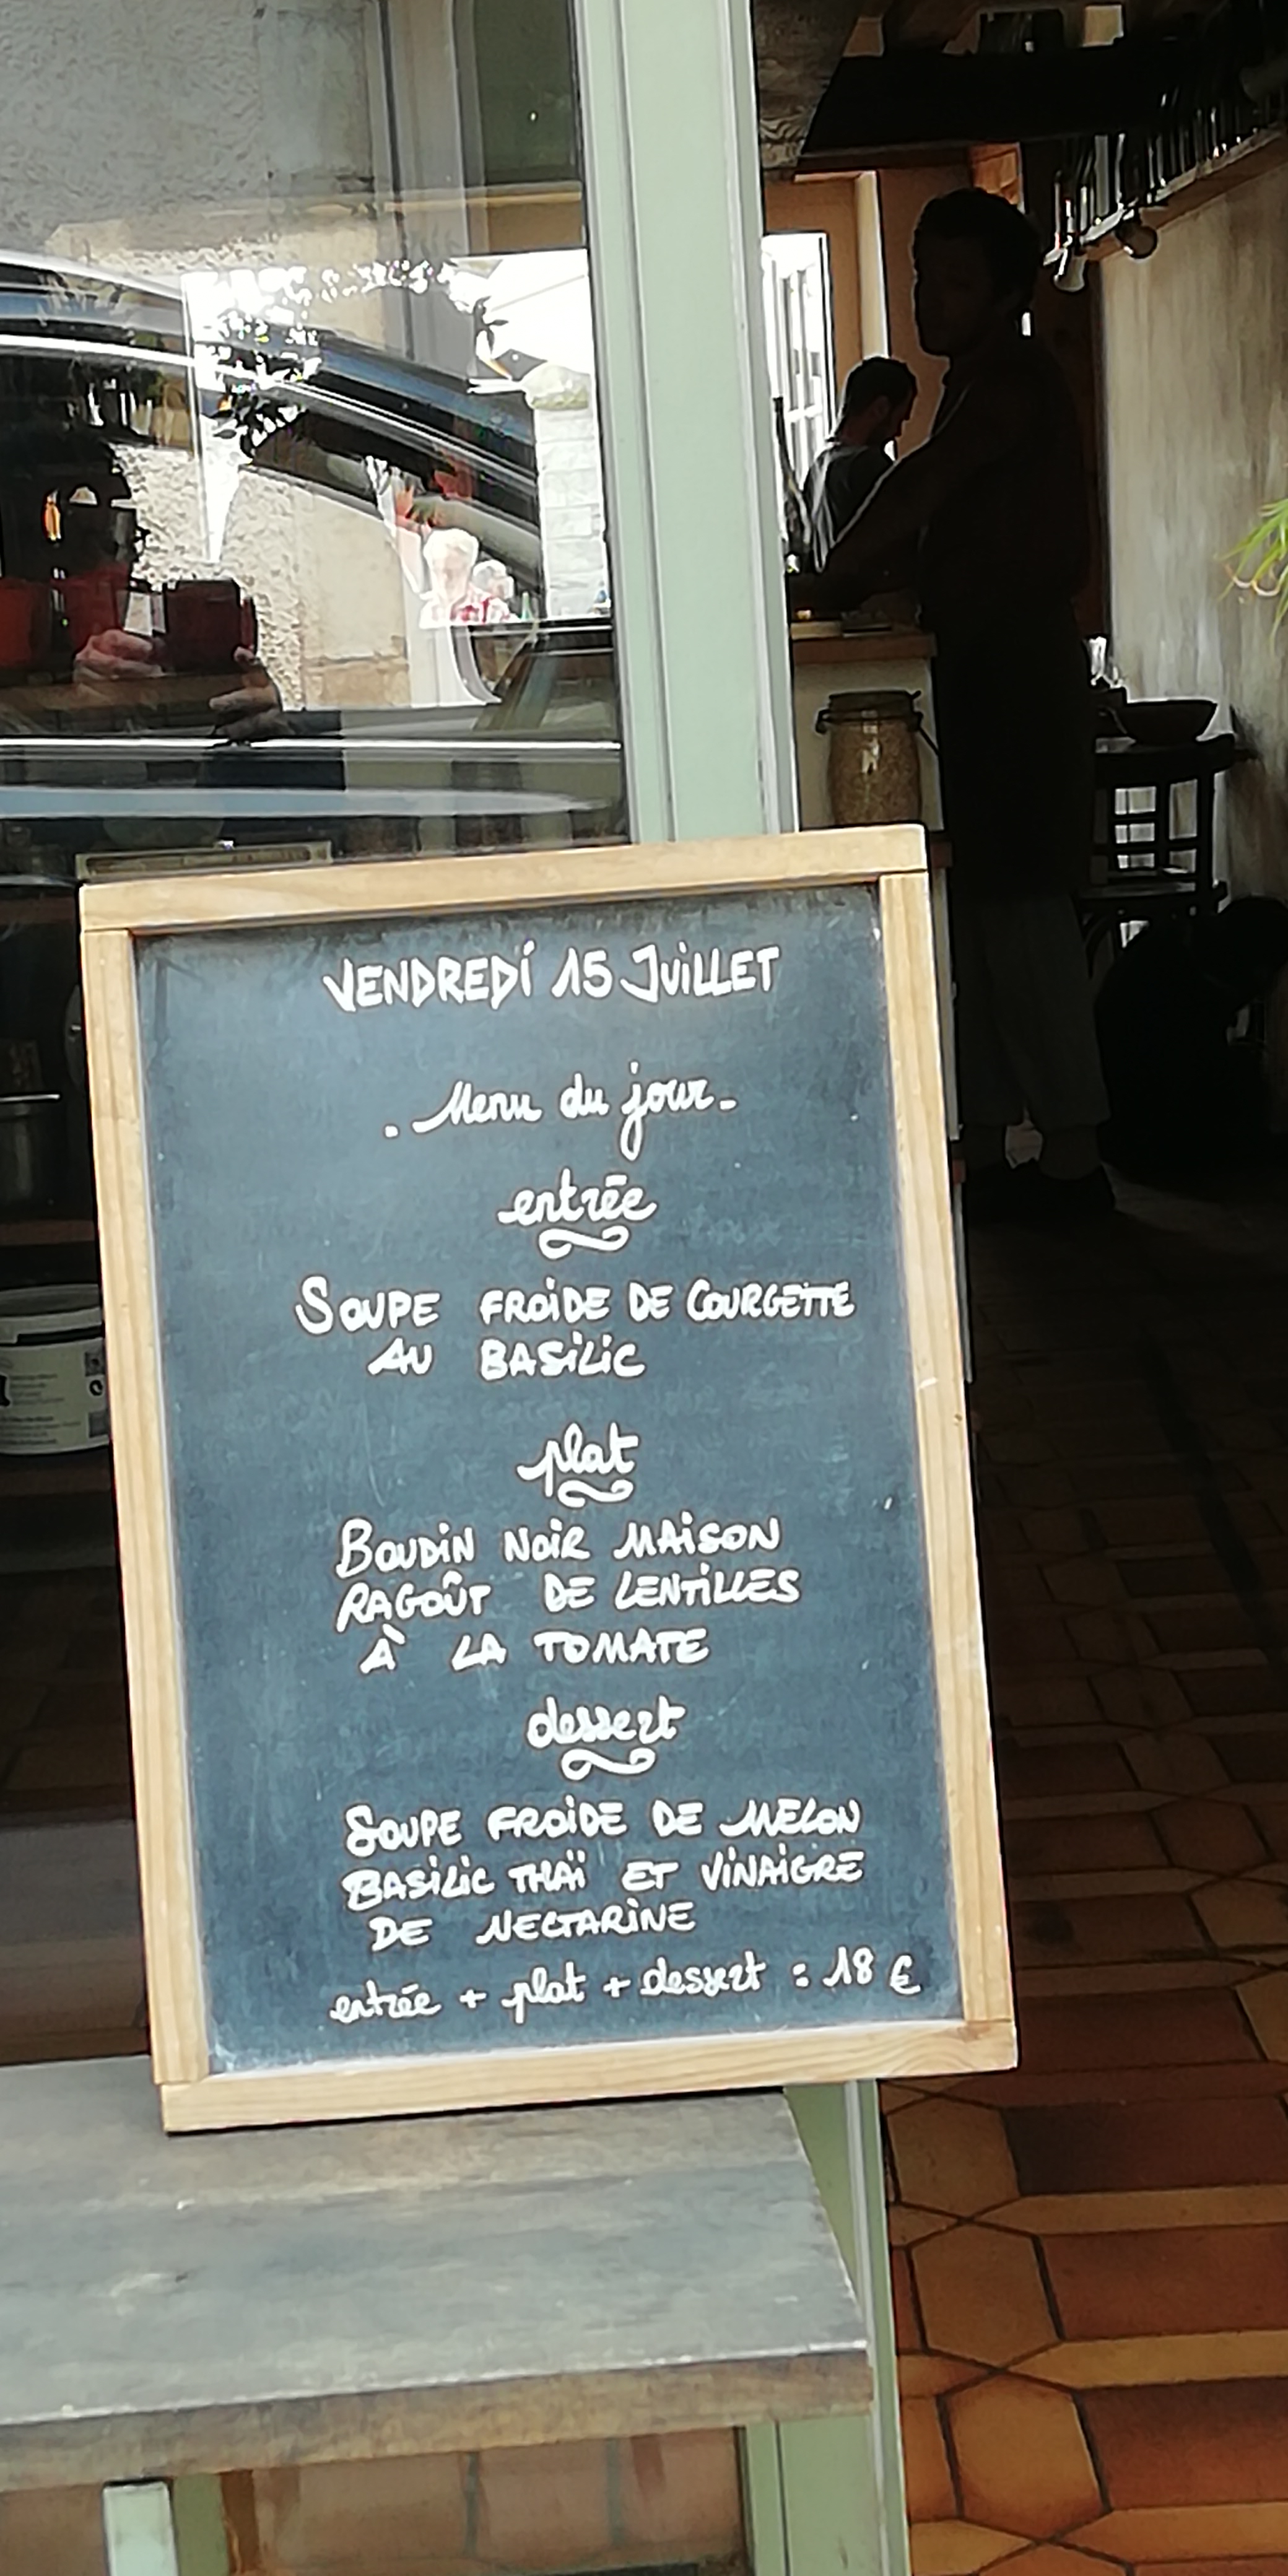 VENDREDI 15 JUILLET
. Menu du jour -
entrée
SOUPE FROIDE DE COURGETTE
AU BASILIC
plat
BOUDIN NOIR MAISON
RAGOÛT DE LENTILLES
À LA TOMATE
dessert
SOUPE FROIDE DE MELON
BASILIC THAÏ ET VINAIGRE
DE NECTARINE
entrée + plat + dessert : 18 €